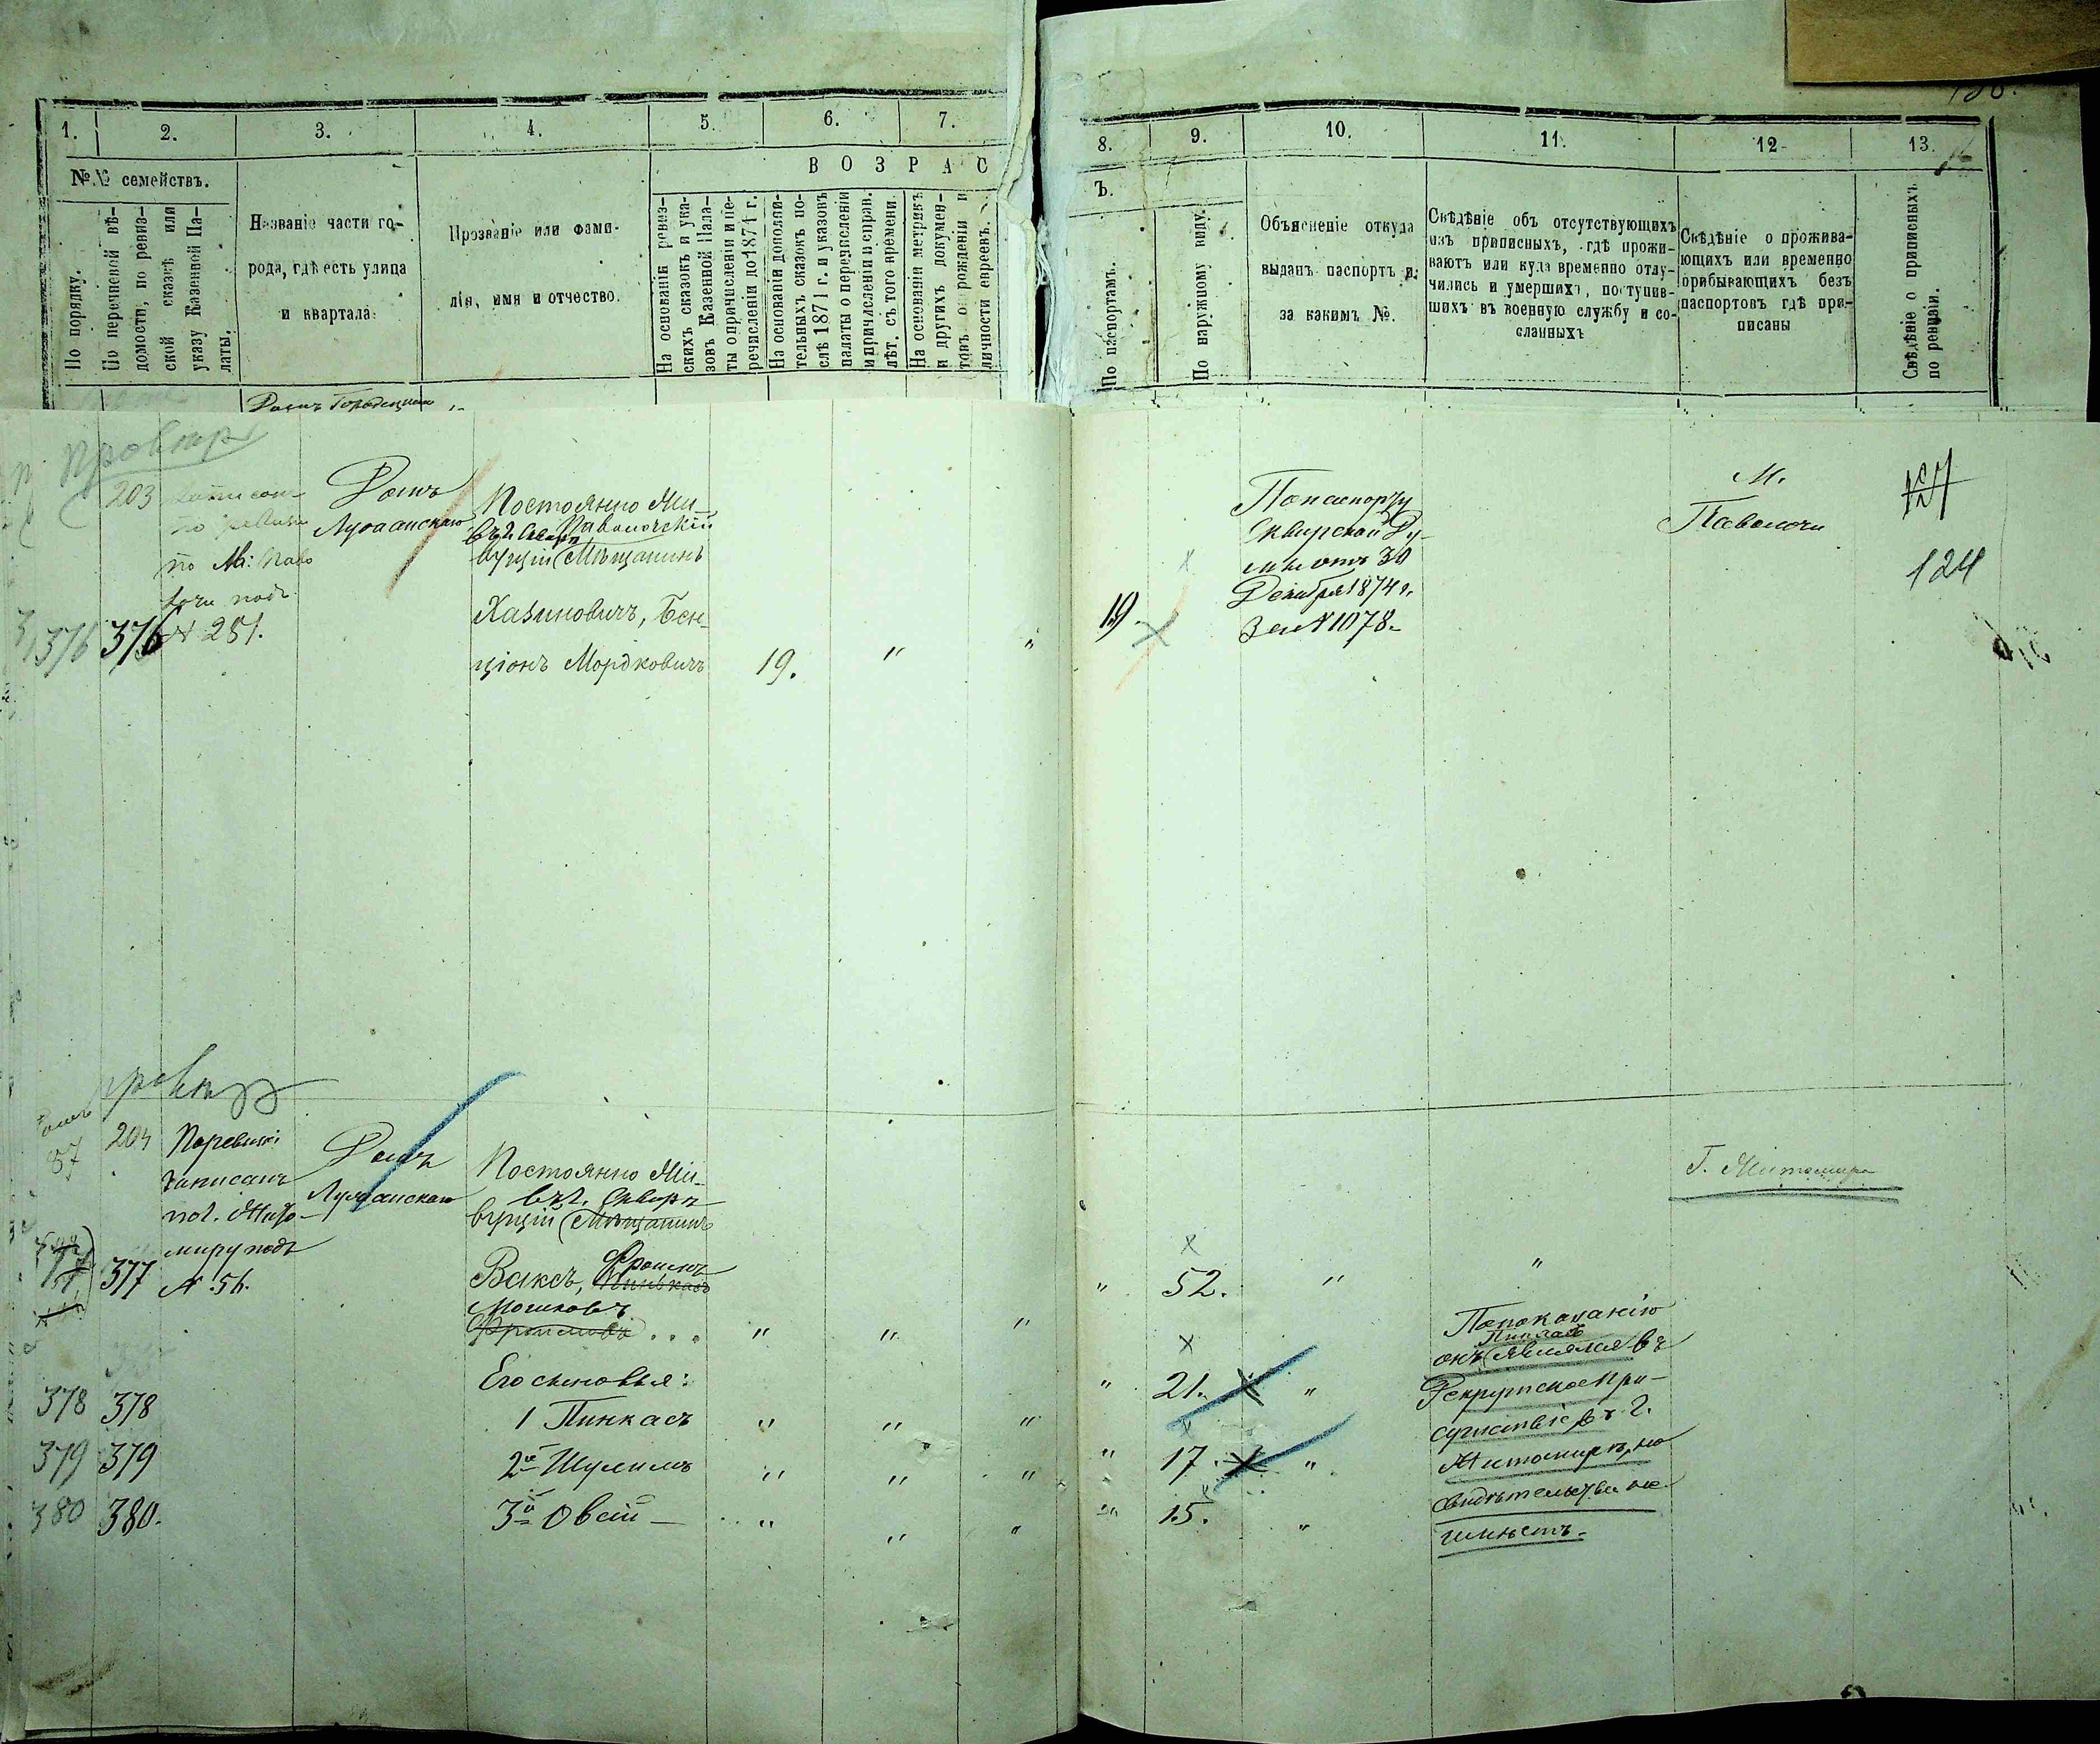 1.
2.
3.
4.
5.
6.
7.
№№ семействъ.
По порядку.
По перечневой вѣ-
домости, по ревиз-
ской сказкѣ или
указу Казенной Па-
латы.
Названіе части го-
рода, гдѣ есть улица
и квартала
Прозваніе или фами-
лія, имя и отчество.
ВОЗРАС
На основаніи ревиз-
скихъ сказокъ и ука-
зовъ Казенной Пала-
ты о причисленіи и пе-
речисленіи до 1871 г.
На основаніи дополни-
тельныхъ сказокъ по-
слѣ 1871 г. и указовъ
палаты о перечисленіи
и причисленіи и справ.
лѣт. съ того времени.
На основаніи метрикъ
и другихъ докумен-
товъ о рожденіи и
личности евреевъ.
8.
9.
10.
11.
12
13.
Ъ.
По паспортамъ.
По наружному виду.
Объясненіе откуда
выданъ паспортъ и
за какимъ №.
Свѣдѣніе объ отсутствующихъ
изъ приписныхъ, гдѣ прожи-
ваютъ или куда временно отлу-
чились и умершихъ, поступив-
шихъ въ военную службу и со-
сланныхъ
Свѣдѣніе о прожива-
ющихъ или временно
прибывающихъ безъ
паспортовъ гдѣ при-
писаны
Свѣдѣніе о приписныхъ
по ревизіи.
Домъ
203
по М: Паво
лочи подъ
376 376 № 281.
Домъ
Постоянно Жи-
въ г. Сквирѣ Паволочскій
вущій Мѣщанинъ
Хазиновичъ, Бен-
ціонъ Мордковичъ 19. " "
19.
По паспорту
Сквирской Ду-
мы отъ 30
Декабря 1874 г.
За № 1078.
М.
Паволочи
124
204
По ревизіи
записанъ
по г. Жито-
миру подъ
377 № 56.
Домъ
Постоянно Жи-
въ г. Сквирѣ
вущій Мѣщанинъ
Фроимъ
Ваксъ, Пинькасъ
Мошковъ
Фроимовъ . . . " " "
Его сыновья:
378 378 1 Пинкасъ " " "
379 379 2й Шулимъ " " "
380 380. 3й Овсій " " "
" 52. " "
" 21. "
" 17. "
" 15. "
По показанію
Пинкасъ
онъ явился въ
Рекрутское При-
сутствіе въ г.
Житомирѣ, но
свидѣтельства не
имѣетъ.
Г. Житомира